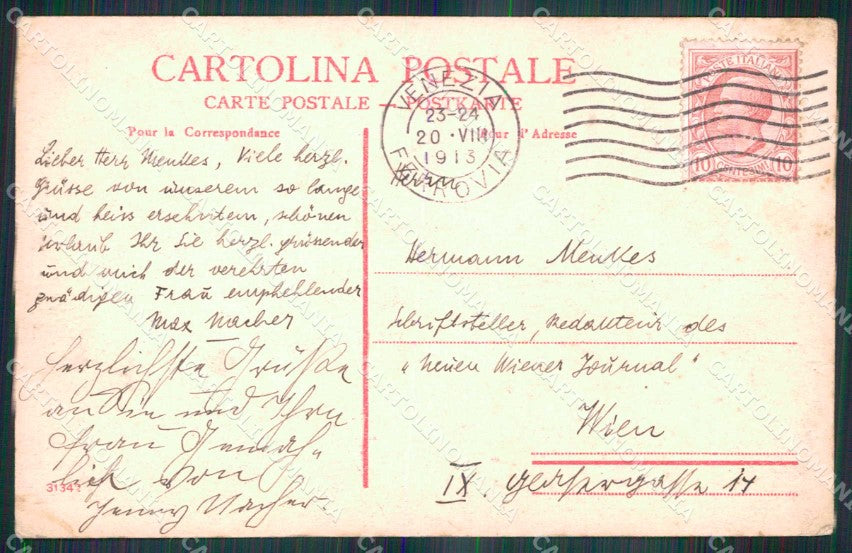 CARTOLINA POSTALE
CARTE POSTALE — POSTKARTE
Pour la Correspondance
Pour l'Adresse
VENEZIA
23-24
20 · VII
1913
FERROVIA
POSTE ITALIANE
10 CENTESIMI 10
Lieber Herr Menkes, Viele herzl.
Grüsse von unserem so lange
und heiss ersehntem, schönen
Urlaub Ihr Sie herzl. grüssender
und auch der verehrten
gnädigen Frau empfehlender
Max Nacher
Herzlichste Grüße
an Sie und Ihre
Frau Gemah-
lich von
Jenny Nacher
3134
Herrn
Hermann Menkes
Schriftsteller, Redakteur des
„Neuen Wiener Journal"
Wien
IX. Glasergasse 14
CARTOLINOMANIA